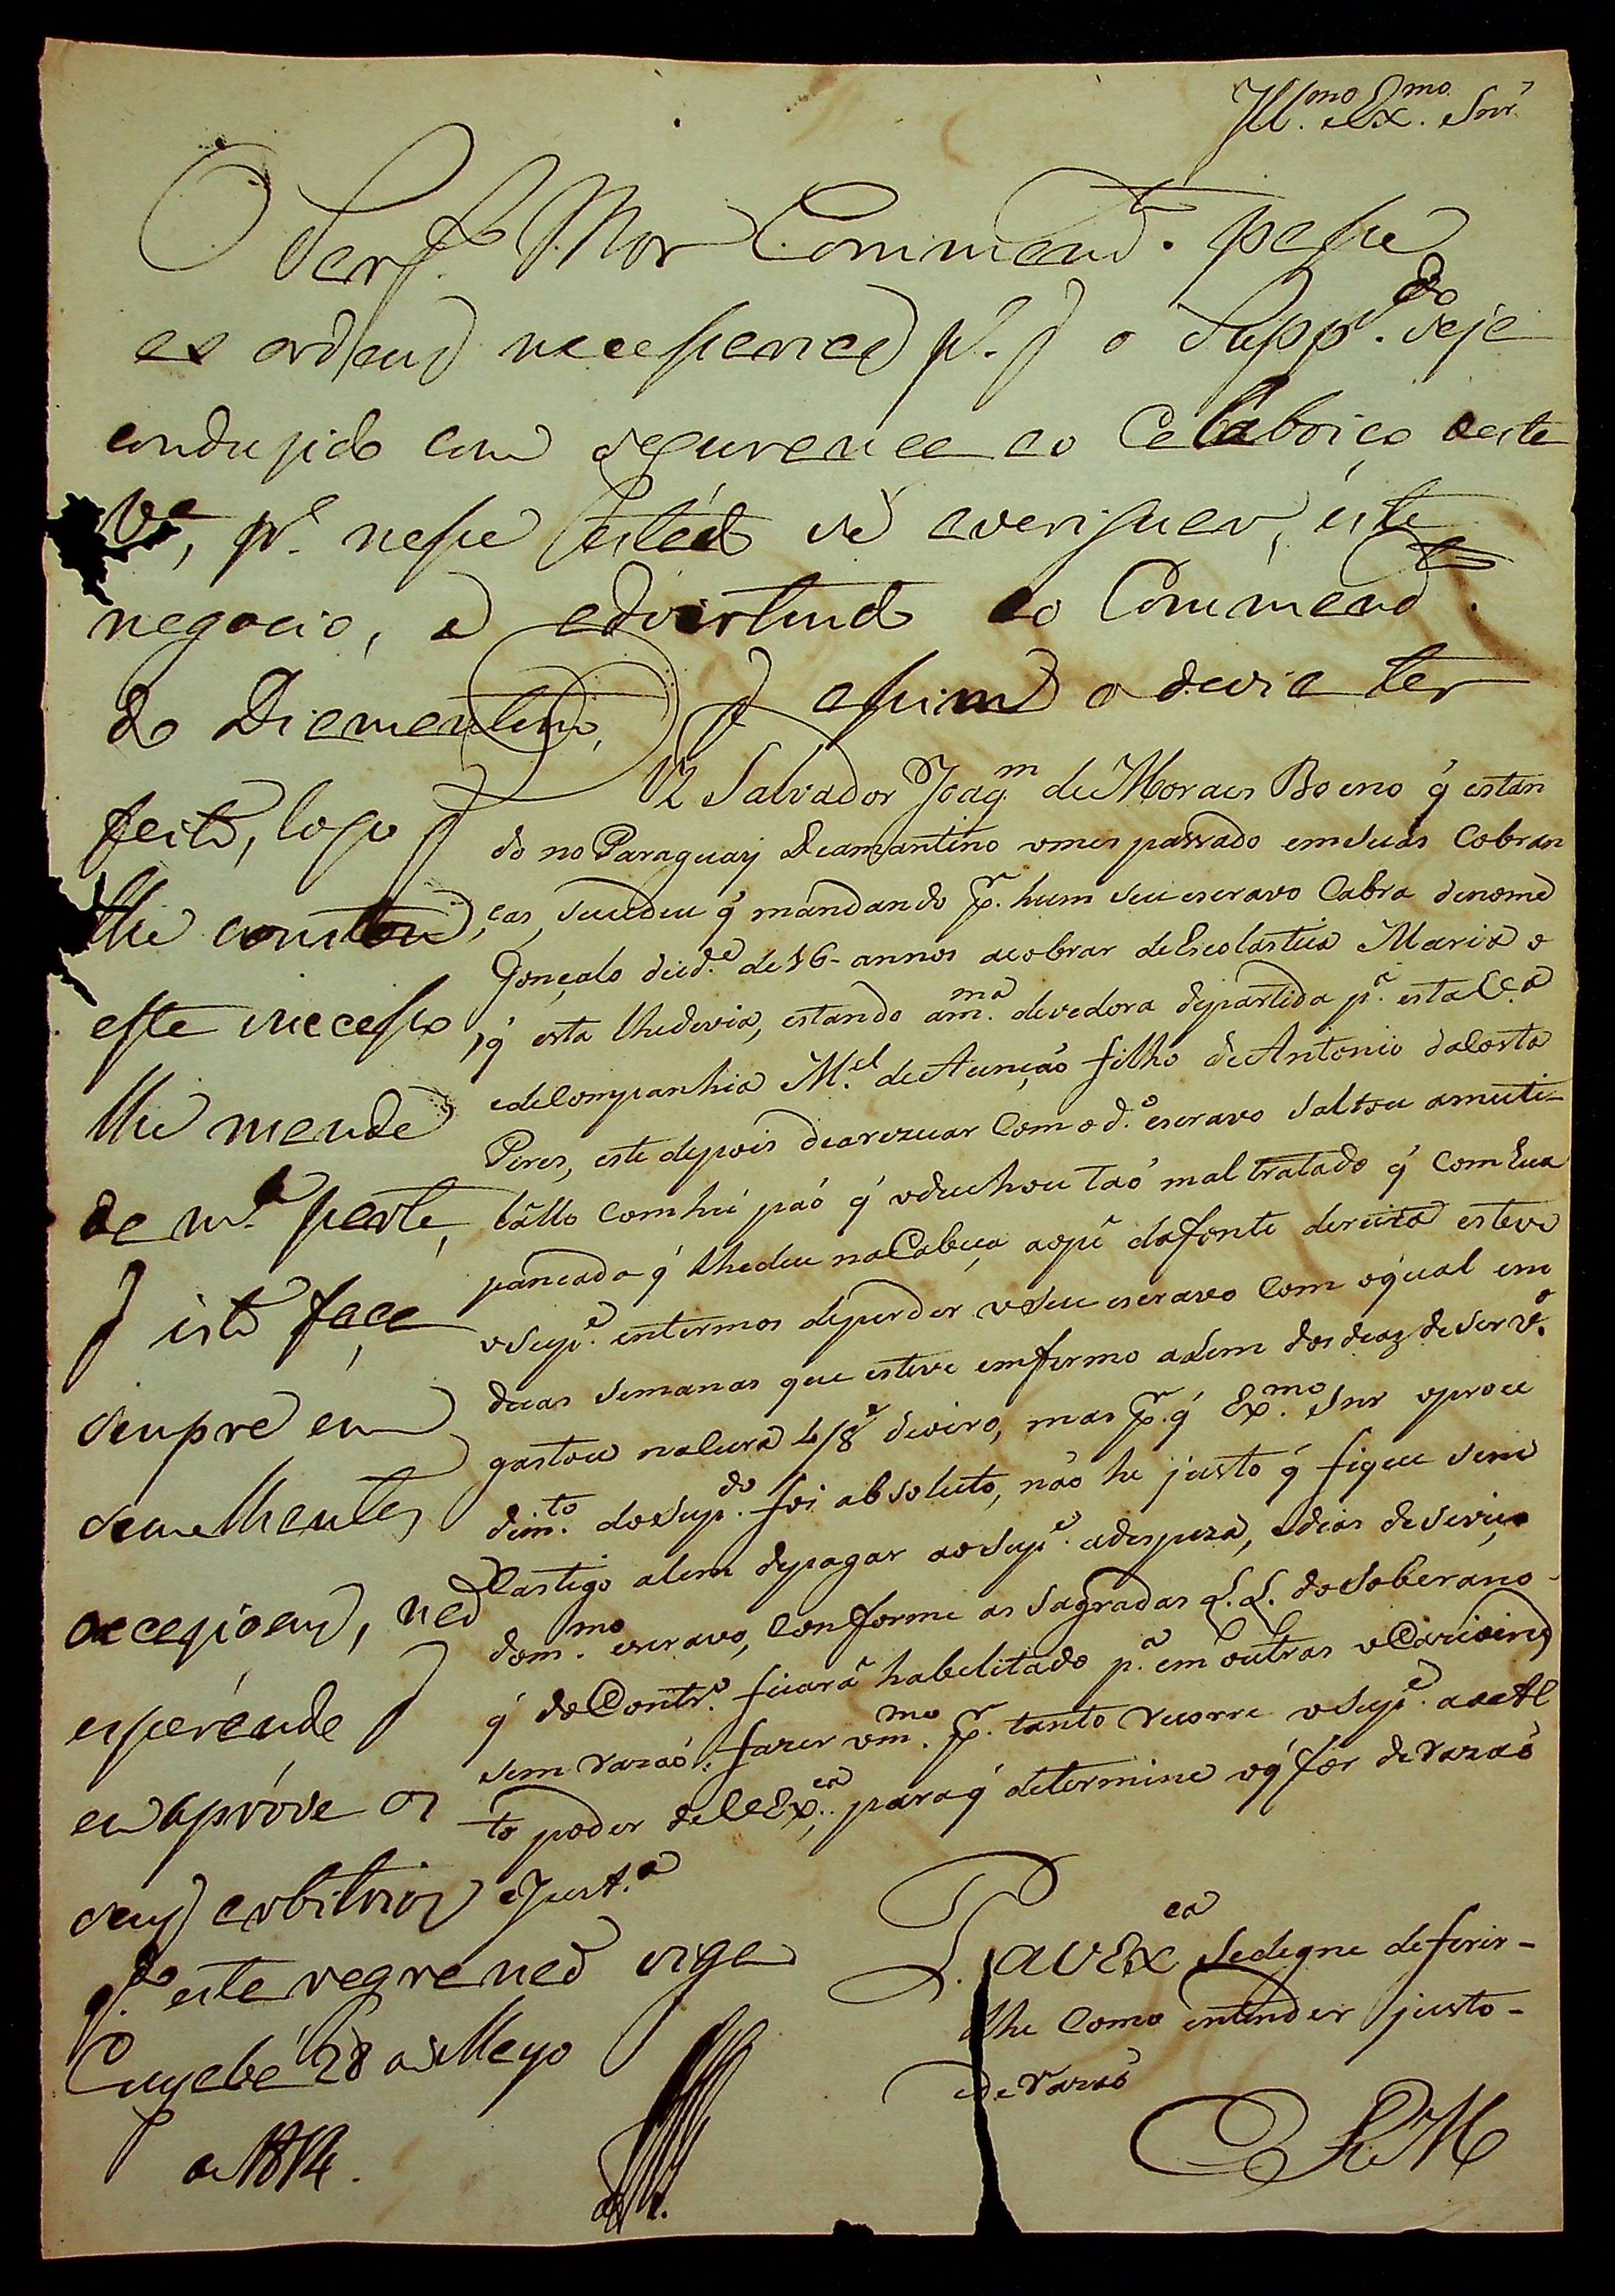 Ill.mo Ex.mo Snr.
O Sarg.to Mor Commend.te passe
as ordens necessarias p.a q̃ o Supp.do seje
condusido com segurança ao Calaboiço desta
V.a, p.a nesse estado se averiguar, este
negocio, e advertindo ao Commend.te
do Diamantino, q̃ assim o devia ter
feito, logo q̃
lhe constou,
este successo,
lhe mande
de m.a parte,
q̃ isto faça
sempre em
semelhantes
occazioens, não
esperando q̃
eu aprove os
seus arbitrios
p.o este regra não siga
Cuyabá 28 de Mayo
de 1814.
Diz Salvador Joaq.m de Moraes Boeno q̃ estan
do no Paraguay Deamantino o mes passado em suas Cobran
ças, sucedeu q̃ mandando p.r hum seu escravo Cabra de nome
Gonçalo de id.e de 16 annos a cobrar de Escolastica Maria o
q̃ esta lhe devia, estando a m.ma devedora de partida p.a esta V.a
e de Companhia M.el de Asunção filho de Antonio da Costa
Pires, este depois de arezuar com o d.o escravo saltou a meti-
lallo com hú páo q̃ o deichou taó mal tratado q̃ com hua
pancada q̃ lhe deu na Cabeça ao pé da fonte dereita esteve
o Sup.e entermos de perder o seu escravo com o qual em
duas semanas que esteve emfermo alem dos deaz de Serv.o
gastou na Cura 4/8.s de oiro, mas p.r q̃ Ex.mo Snr o proce
dim.to do Sup.do foi absoluto, não he justo q̃ fique sem
Castigo alem de pagar ao Sup.e a despeza, e dias de serviço
do m.mo escravo, conforme as Sagradas L.L. do Soberano
q̃ do Contr.o ficará habelitado p.a em outras o Cazioins
sem razaó: fazer o m.mo p.r tanto recorre o Sup.e ao Al
to poder de V Ex.ca; para q̃ determine o q̃ for de razaó
e Just.a
P. a V Ex.ca Se degne deferir-
lhe como entender justo-
e de razaó
E R M